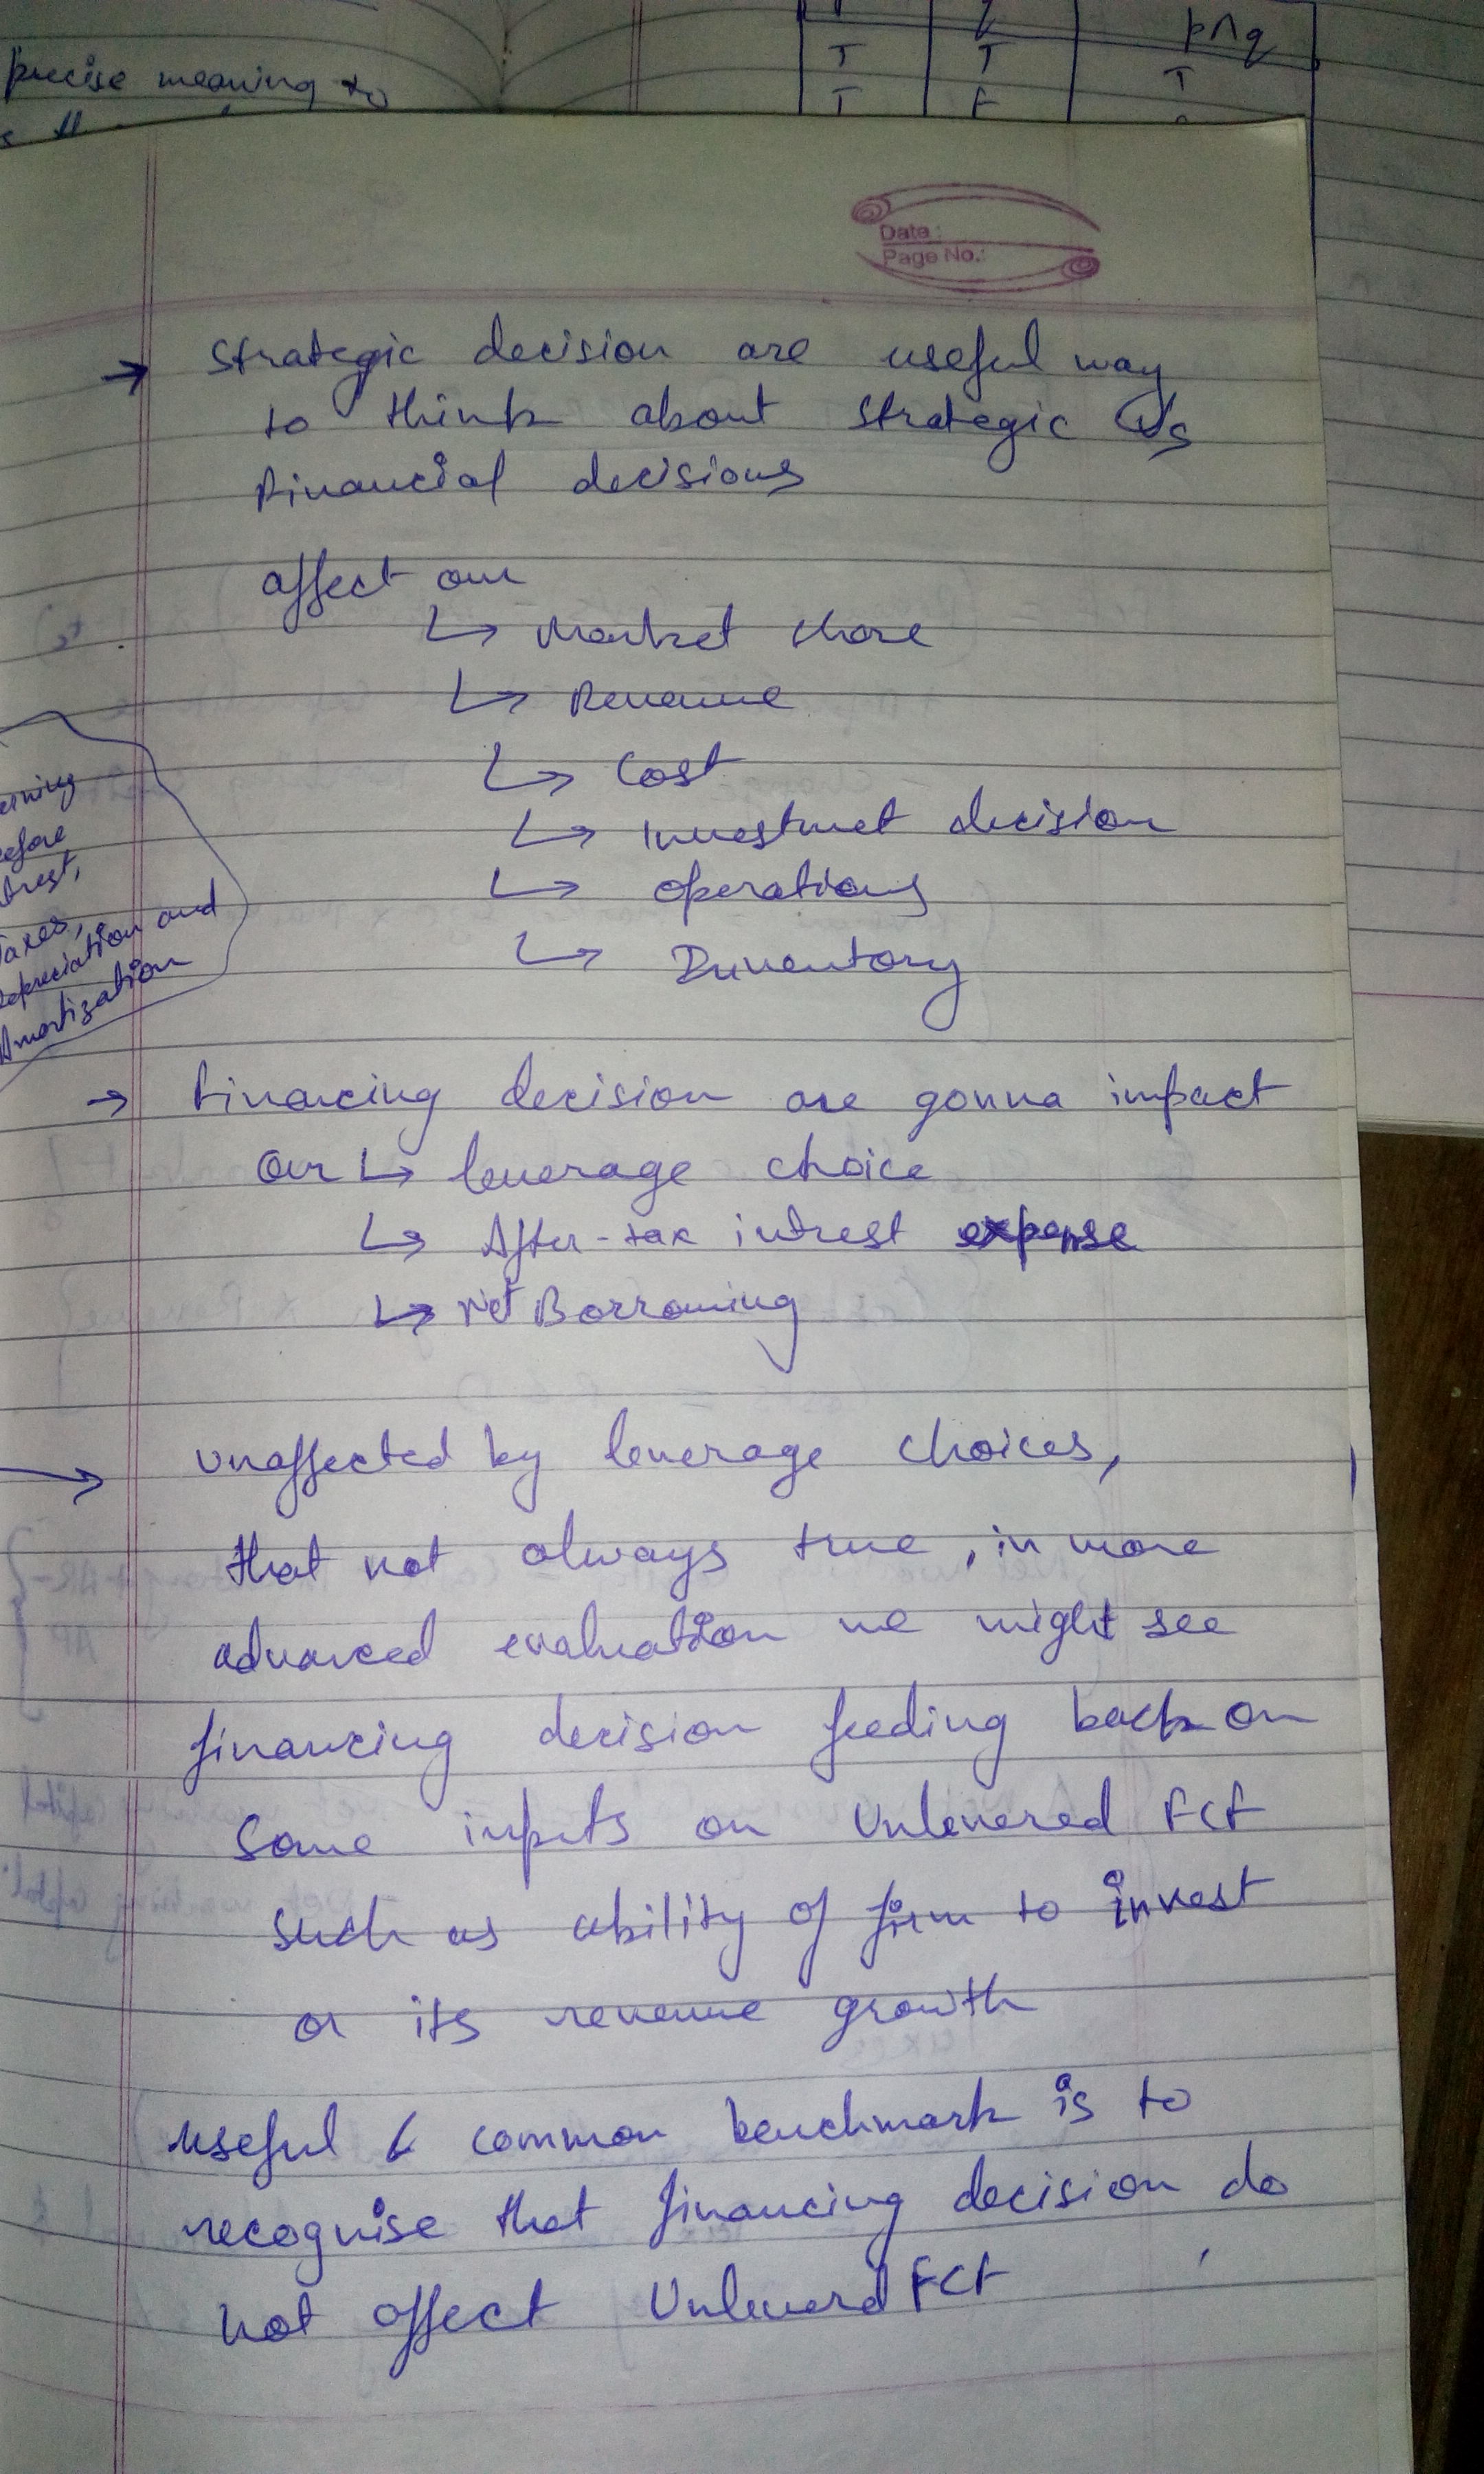 precise meaning to
p q p∧q
T T T
T F
Date:
Page No.:
→ Strategic decision are useful way
to think about strategic Vs
Financial decisions
affect our
↳ Market share
↳ Revenue
↳ Cost
↳ Investmet decision
↳ operations
↳ Inventory
Taxes,
and
Amortization
→ Financing decision are gonna impact
Our ↳ leverage choice
↳ After-tax intrest expense
↳ Net Borrowing
→ unaffected by leverage choices,
that not always true, in more
advanced evaluation we might see
financing decision feeding back on
some inputs on Unlevered FCF
such as ability of firm to invest
or its revenue growth
useful & common benchmark is to
recognise that financing decision do
not affect Unleverd FCF